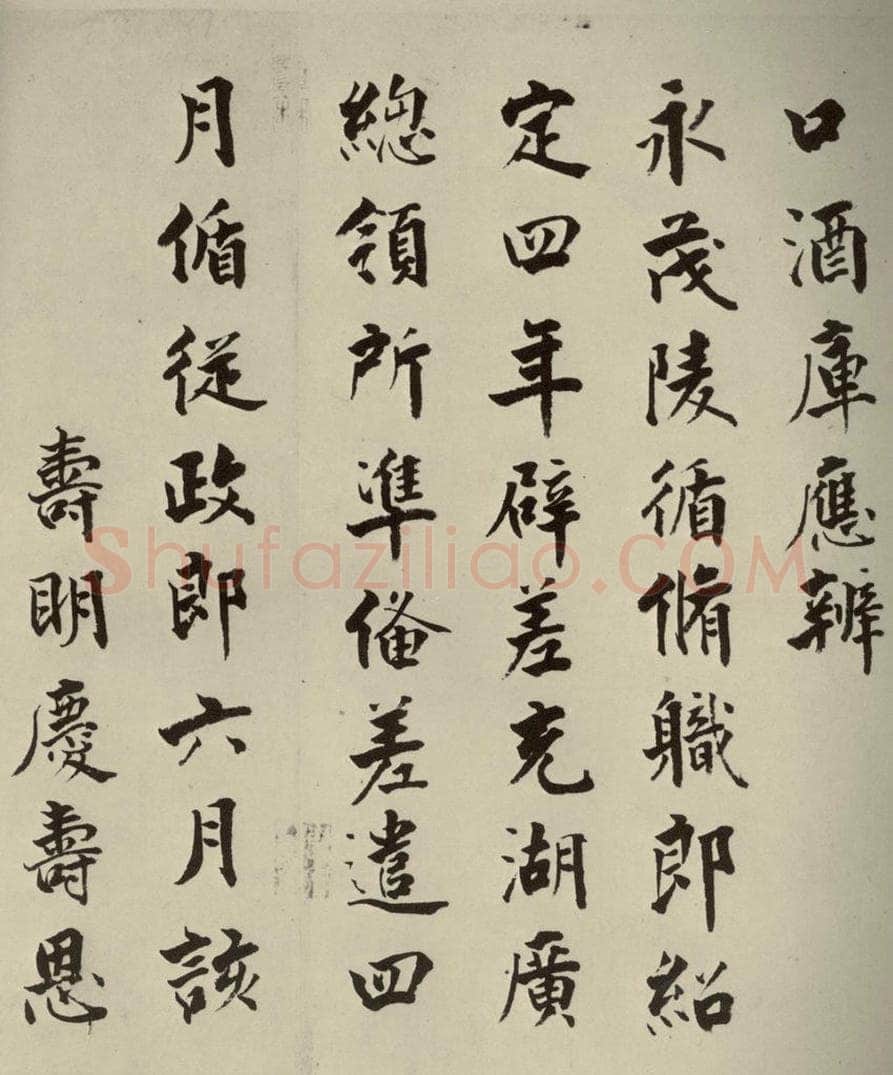 口酒庫應辦
永茂陵循脩職郎紹
定四年辟差充湖廣
總領所準俻差遣四
月循從政郎六月該
壽明慶壽恩
Shufaziliao.COM